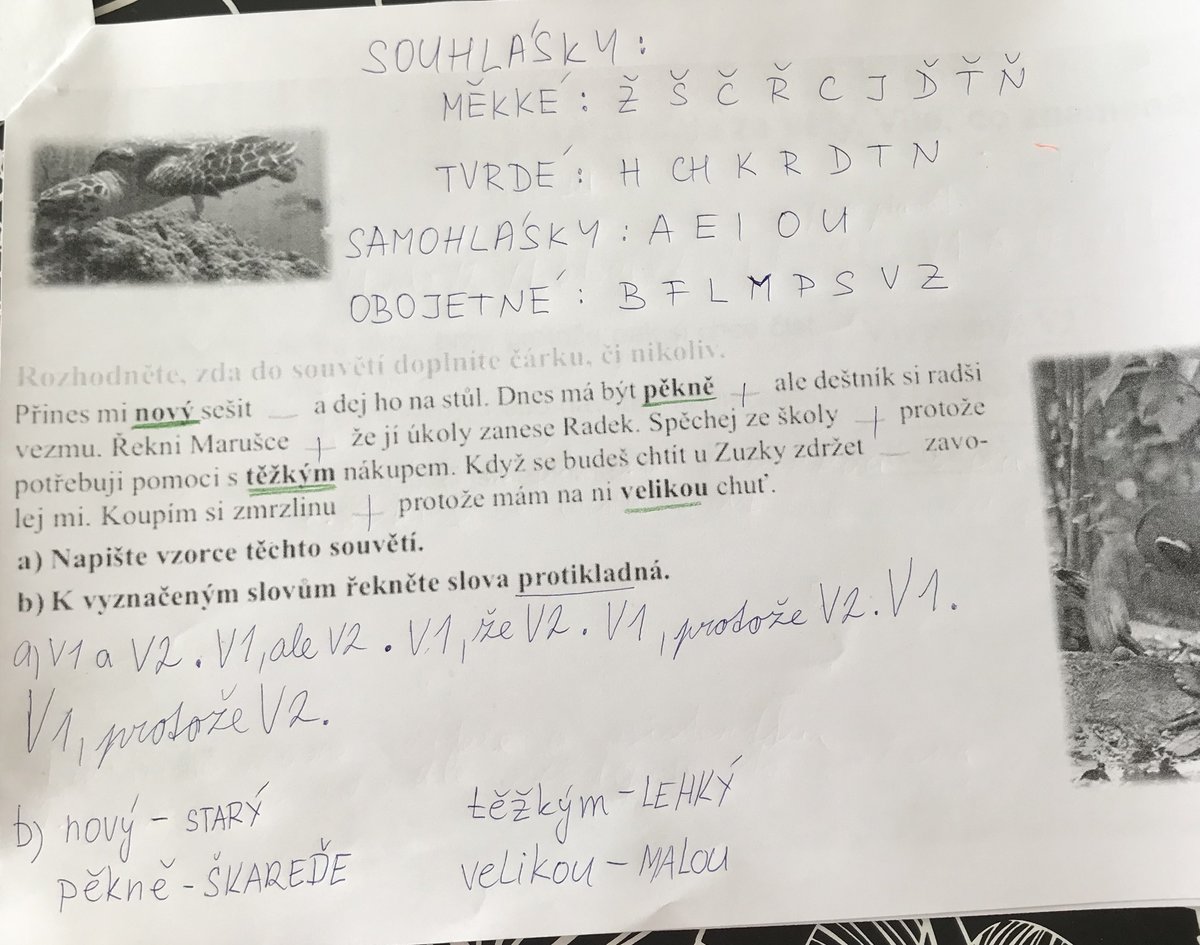 SOUHLÁSKY:
MĚKKÉ: Ž Š Č Ř C J Ď Ť Ň
TVRDÉ: H CH K R D T N
SAMOHLÁSKY: A E I O U
OBOJETNÉ: B F L M P S V Z
Rozhodněte, zda do souvětí doplníte čárku, či nikoliv.
Přines mi nový sešit __ a dej ho na stůl. Dnes má být pěkně + ale deštník si radši
vezmu. Řekni Marušce + že jí úkoly zanese Radek. Spěchej ze školy + protože
potřebuji pomoci s těžkým nákupem. Když se budeš chtít u Zuzky zdržet __ zavo-
lej mi. Koupím si zmrzlinu + protože mám na ni velikou chuť.
a) Napište vzorce těchto souvětí.
b) K vyznačeným slovům řekněte slova protikladná.
a) V1 a V2. V1, ale V2. V1, že V2. V1, protože V2. V1.
V1, protože V2.
b) nový - STARÝ těžkým - LEHKÝ
pěkně - ŠKAREĎE velikou - MALOU